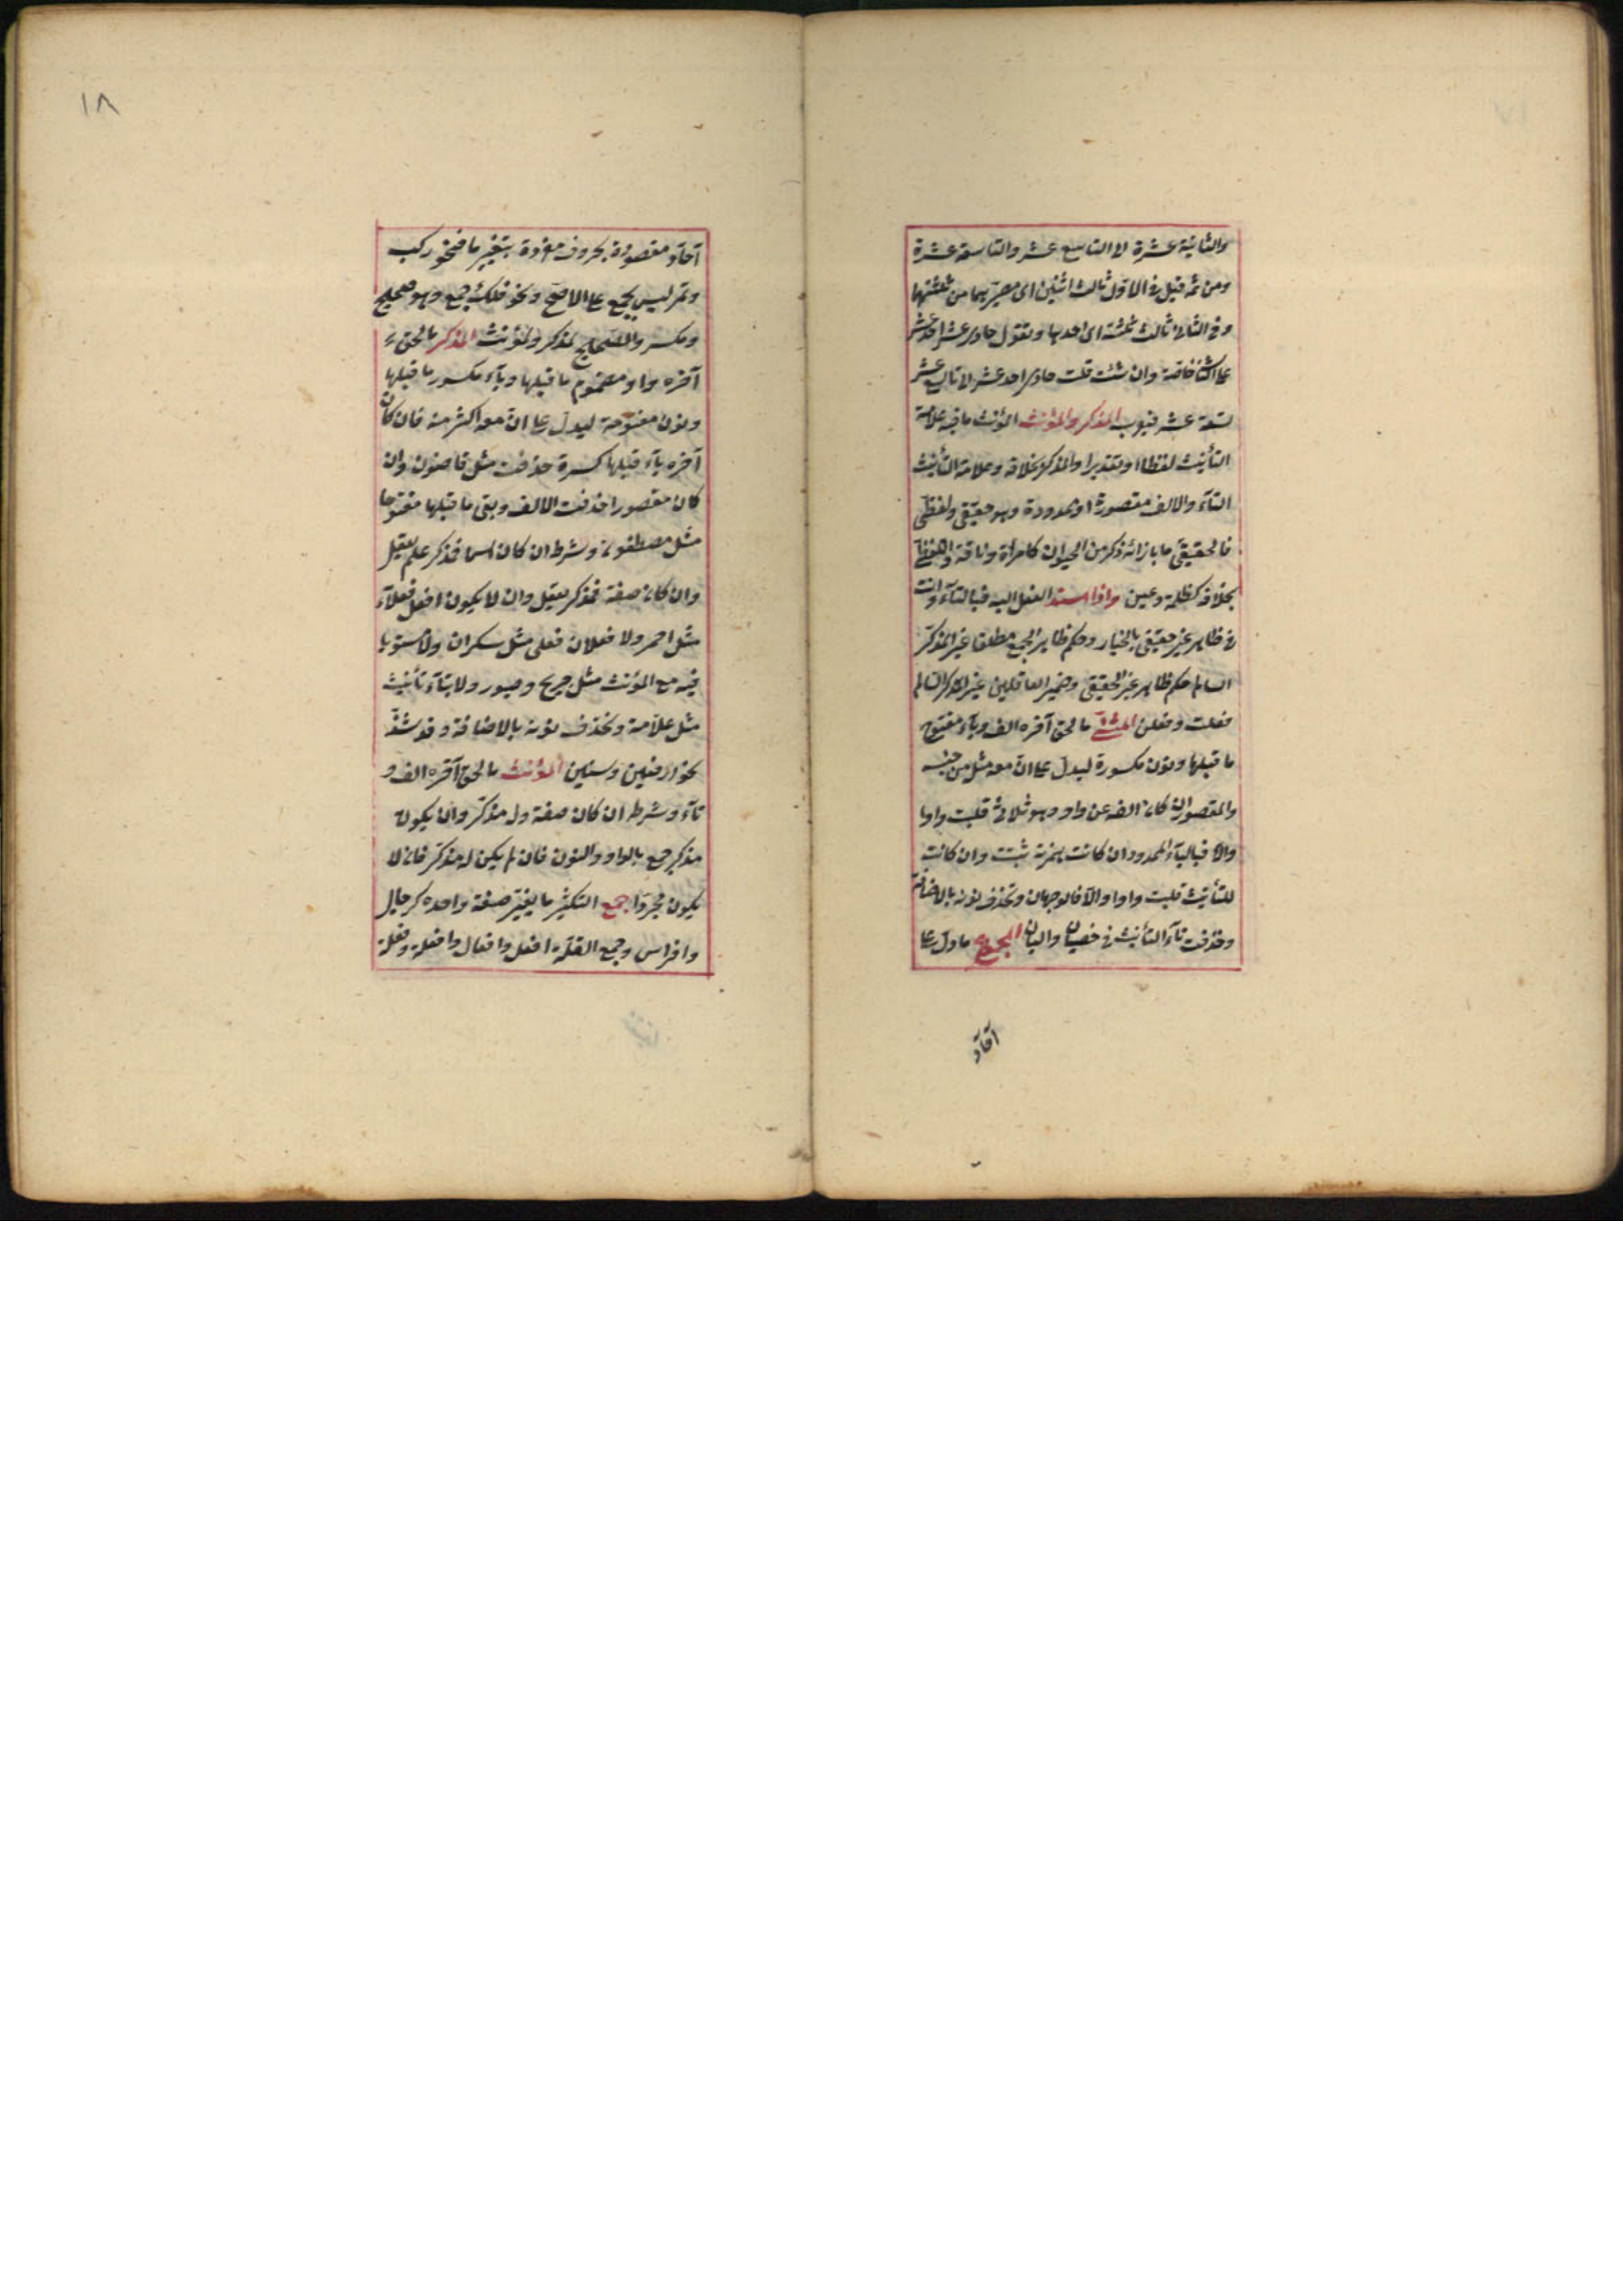 والثانية عشرة الى التاسع عشر والتاسعة عشرة
ومن ثمه قيل فى الاول ثالث اثنين اى مصيرهما من ثلثتهما
وفى الثانى ثالث ثلثة اى احدها وتقول حادى عشر احد عشر
على الثانى خاصة وان شئت قلت حادى احد عشر الى تاسع
تسعة عشر فيعرب المذكر والمؤنث المؤنث ما فيه علامة
التأنيث لفظا او تقديرا والمذكر بخلافه وعلامة التأنيث
التآء والالف مقصورة او ممدودة وهو حقيقى ولفظى
فالحقيقى ما بازائه ذكر من الحيوان كامرأة وناقة واللفظى
بخلافه كظلمة وعين واذا اسند الفعل اليه فبالتآء وانت
فى ظاهر غير حقيقى بالخيار وحكم ظاهر الجمع مطلقا غير المذكر
السالم حكم ظاهر غير الحقيقى وضمير العاقلين غير المذكر السالم
فعلت وفعلن المثنى ما لحق آخره الف ويآء مفتوح
ما قبلها ونون مكسورة ليدل على ان معه مثله من جنسه
والمقصور ان كان الفه عن واو وهو ثلاثى قلبت واوا
والا فباليآء الممدود ان كانت همزته ثبتت وان كانت
للتأنيث قلبت واوا والا فالوجهان وتحذف نونه بالاضافة
وحذفت تآء التأنيث فى خصيان واليان المجموع ما دل على
آحآد
١٨
آحآد مقصودة بحروف مفردة بتغيير ما فنحو ركب
وتمر ليس بجمع على الاصح ونحو فلك جمع وهو صحيح
ومكسر والصحيح لمذكر ولمؤنث المذكر ما لحق
آخره واو مضموم ما قبلها ويآء مكسور ما قبلها
ونون مفتوحة ليدل على ان معه اكثر منه فان كان
آخره يآء قبلها كسرة حذفت مثل قاضون وان
كان مقصورا حذفت الالف وبقى ما قبلها مفتوحا
مثل مصطفون وشرطه ان كان اسما فمذكر علم يعقل
وان كان صفة فمذكر يعقل وان لا يكون افعل فعلآء
مثل احمر ولا فعلان فعلى مثل سكران ولا مستويا
فيه مع المؤنث مثل جريح وصبور ولا بتآء تأنيث
مثل علامة وتحذف نونه بالاضافة وقد شذ
نحو ارضين وسنين المؤنث ما لحق آخره الف و
تآء وشرطه ان كان صفة وله مذكر وان يكون
مذكره جمع بالواو والنون فان لم يكن له مذكر فان لا
يكون مجردا جمع التكثير ما يغير صيغة واحده كرجال
وافراس وجمع القلة افعل وافعال وافعلة وفعلة